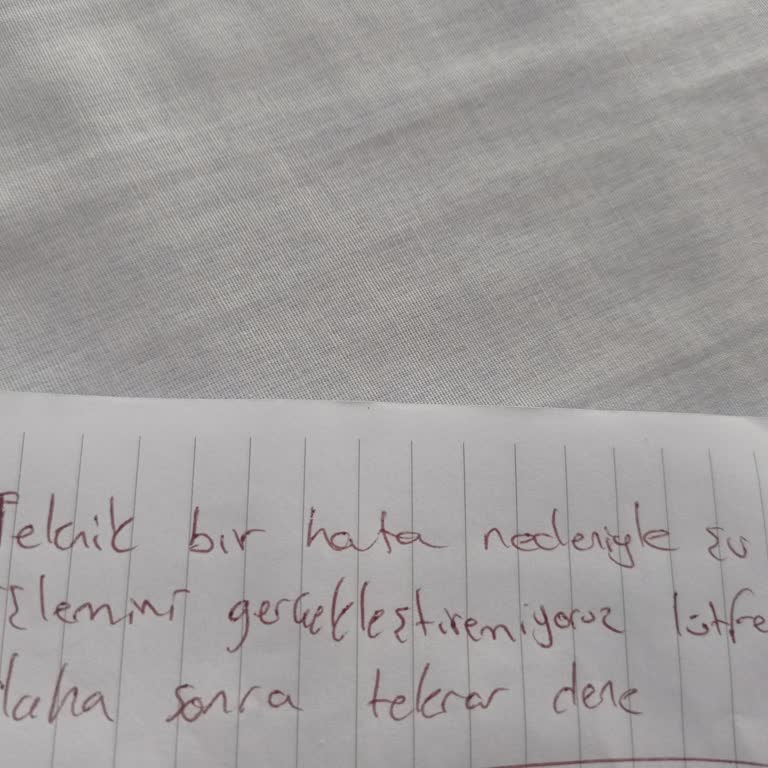 Teknik bir hata nedeniyle şu
işlemini gerçekleştiremiyoruz lütfe
daha sonra tekrar dene